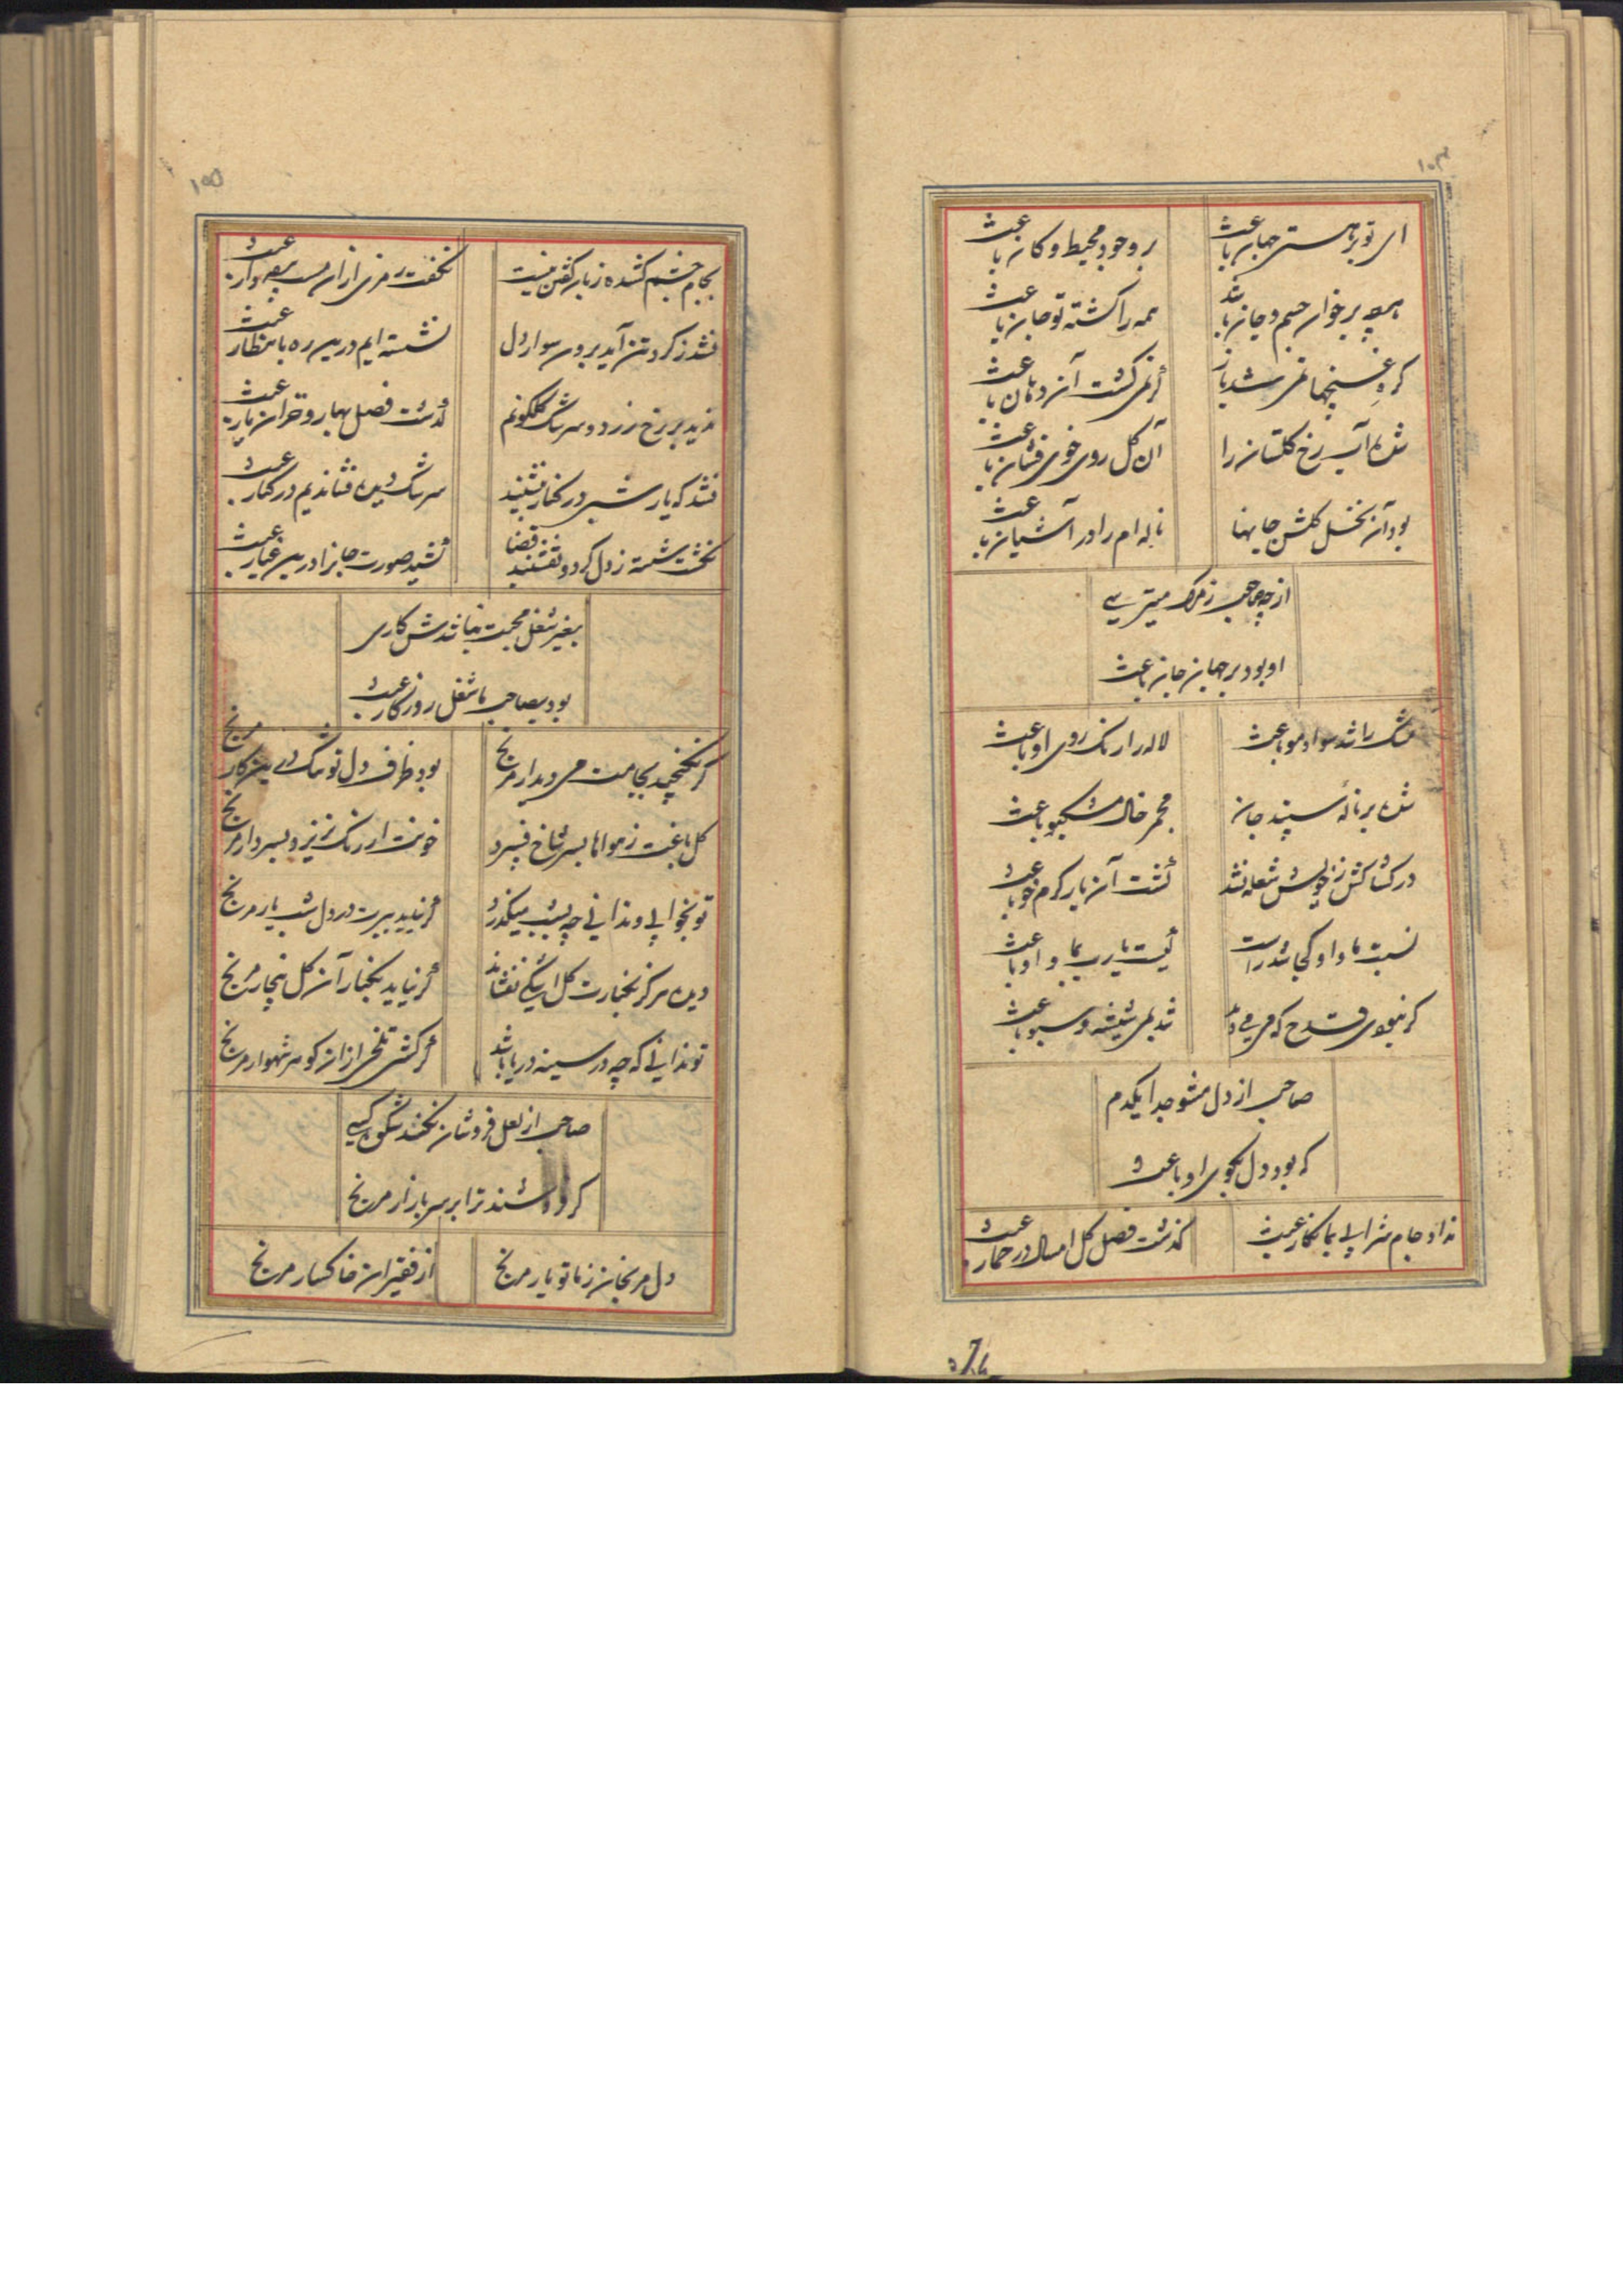 ۱۰۴
ای تو بر هستی جهان باعث
بر وجود محیط و کان باعث
همه بر خوان جسم و جان باشد
همه را گشته تو جان باعث
گره غنچها نمی شد باز
گر نمی گشت آن دهان باعث
شده آب رخ گلستان را
آن گل روی خوی فشان باعث
بود آن نخل گلشن جانها
ناله ام را در آشیان باعث
از چه صاحب ز مرگ میترسی
او بود بر جهان جان باعث
مشک را شد سواد مو باعث
لاله را رنگ روی او باعث
شده بر ناله سپند جان
مجمر خال مشکبو باعث
در کشاکش ز خویش شعله نشد
گشت آن یار گرم خو باعث
نسبت ما و او کجا شد راست
کیست یارب بما و او باعث
گر نبودی قدح که می می داد
شد بمی شیشه و سبو باعث
صاحب از دل مشو جدا یکدم
که بود دل بکوی او باعث
نداد جام شرابی بما نگار عبث
گذشت فصل گل امسال در خمار عبث
بجام
۱۰۵
بجام چشم کشده زبان گفتن نیست
نگفت رمزی ازان مست هوشیار عبث
نشد ز گرد تن آید برون سوار دل
نشسته ایم درین ره بانتظار عبث
ندید بر رخ زرد و سرشک گلگونم
گذشت فصل بهار و خزان یار عبث
نشد که یار شبی در کنار بنشیند
سرشک دیده فشاندیم در کنار عبث
نخست شسته ز دل گرد و نقشبند قضا
کشید صورت جانرا درین غبار عبث
بغیر شغل محبت نباشدش کاری
بود بصاحب ما شغل روزگار عبث
گر نگنجید بجامت می دیدار مرنج
بود ظرف دل تو تنگ درین کار مرنج
گل باغت ز هواها بسر شاخ فسرد
خونت ار رنگ نریزد بسر دار مرنج
تو بخوابی و ندانی چه بشب میگذرد
گر نیاید ببرت در دل شب یار مرنج
دیده هرگز بکنارت گل اشکی نفشاند
گر نیاید بکنار آن گل بیخار مرنج
تو ندانی که چه در سینه دریا باشد
گر کشی تلخی ازان گوهر شهوار مرنج
صاحب از لعل فروشان نکند شکوه کسی
گر فروشند ترا بر سر بازار مرنج
دل مرنجان ز ما تو یار مرنج
از فقیران خاکسار مرنج